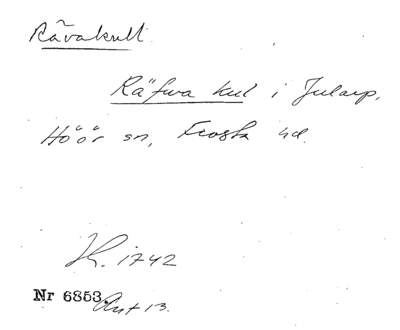 Rävakull
Räfwa kul i Jularp,
Höör sn, Frosta hd.
H. 1742
Nr 6853 Ant 13.